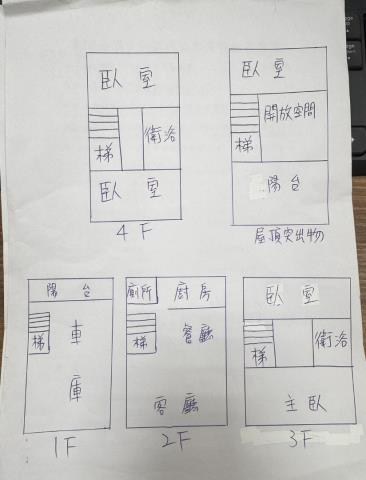 臥室
梯
衛浴
臥室
4F
臥室
開放空間
梯
陽台
屋頂突出物
陽台
梯
車
庫
1F
廁所
廚房
梯
餐廳
客廳
2F
臥室
梯
衛浴
主臥
3F